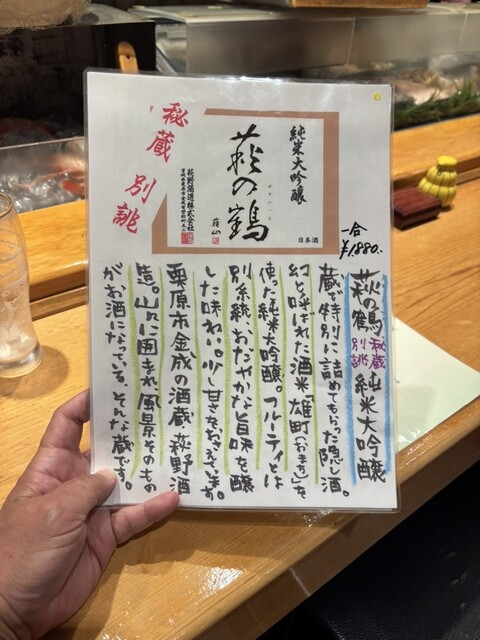 純米大吟醸
萩の鶴
萩野酒造株式会社
日本酒
秘蔵
別誂
一合
¥1,880.
萩の鶴 秘蔵別誂 純米大吟醸
蔵で特別に詰めてもらった隠し酒。
幻と呼ばれた酒米「雄町(おまち)」を
使った純米大吟醸。フルーティとは
別系統、おだやかな旨味を醸
した味わい。少し甘さをおさえています。
栗原市金成の酒蔵・萩野酒
造。山々に囲まれ、風景そのもの
がお酒になっている、そんな蔵です。